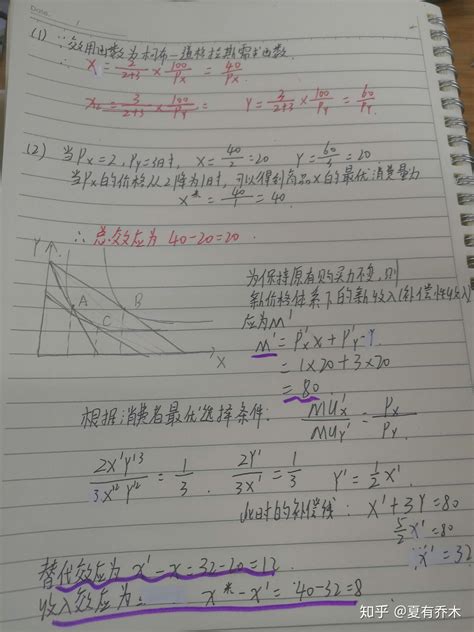 Date.
(1) ∵效用函数为柯布-道格拉斯需求函数.
∴ X = 2/(2+3) × 100/Px = 40/Px
Y = 3/(2+3) × 100/Py = 60/Py
(2) 当Px=2, Py=3时, X = 40/2 = 20 Y = 60/3 = 20
当Px的价格从2降为1时, 可以得到商品X的最优消费量为
X* = 40/1 = 40.
∴ 总效应为 40-20=20.
Y A B C X
为保持原有购买力不变, 则
新价格体系下的新收入(补偿性收入)
应为M'
M' = Px'X + Py'Y
= 1×20 + 3×20
= 80
根据消费者最优选择条件: MUx'/MUy' = Px/Py.
2X'Y'³/3X'²Y'² = 1/3. 2Y'/3X' = 1/3 Y' = 1/2 X'
此时的补偿线: X'+3Y=80
5/2 X' = 80
X' = 32
替代效应为 X'-X=32-20=12
收入效应为: X*-X'=40-32=8
知乎 @夏有乔木